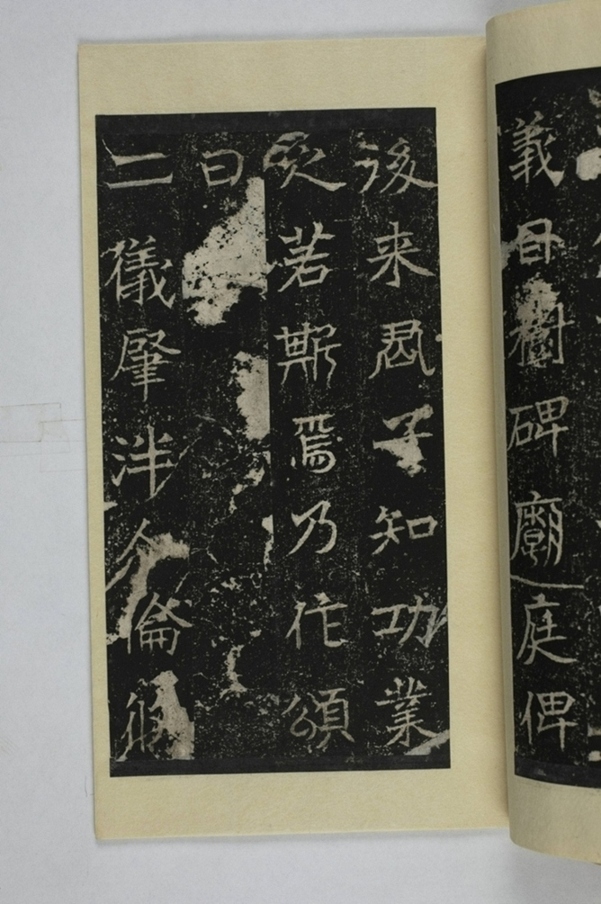 義樹碑廟庭俾
後来君子知功業
若斯焉乃作頌
曰
二儀肇泮倫